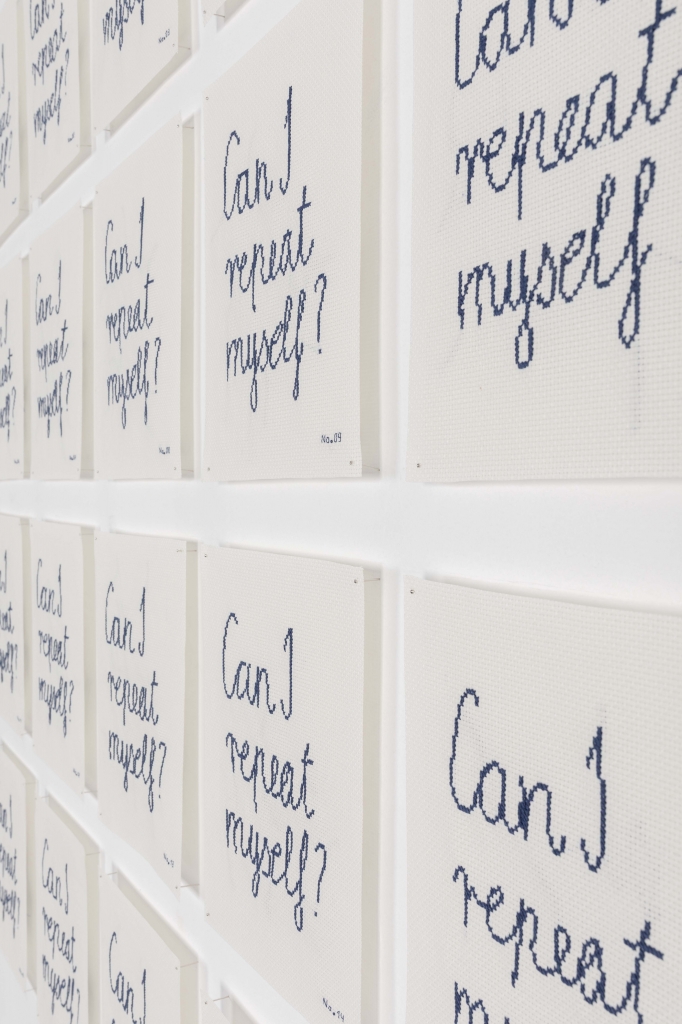 myself?
Can I
repeat
myself?
Can I
repeat
myself?
Can I
repeat
myself?
Can I
repeat
myself?
No.09
Can I
repeat
myself
Can I
repeat
myself?
Can I
repeat
myself?
Can I
repeat
myself?
No.14
Can I
repeat
Can I
repeat
myself?
Can I